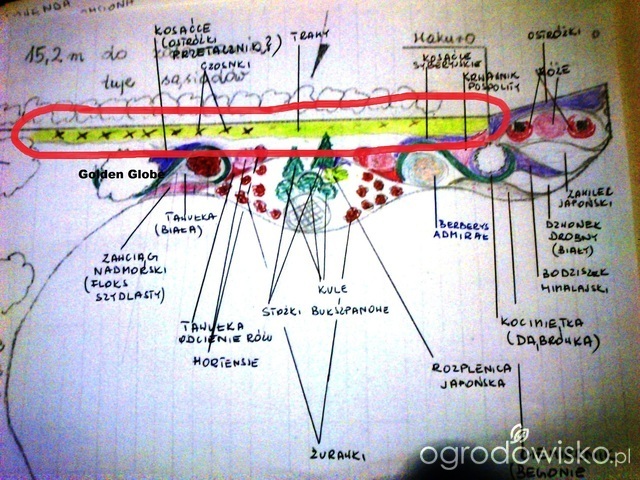 15,2 m do
tuje sąsiadów
KOSAĆCE
(OSTRÓŻKI
PRZETACZNIK?)
CZOSNKI
TRAWY
Hakuro
KOSAĆCE
SYBERYJSKIE
KRWAWNIK
POSPOLITY
OSTRÓŻKI
RÓŻE
Golden Globe
TAWUŁKA
(BIAŁA)
ZAWCIĄG
NADMORSKI
(FLOKS
SZYDLASTY)
TAWUŁKA
ODCIENIE RÓŻU
HORTENSJE
STOŻKI BUKSZPANOWE
KULE
ŻURAWKI
BERBERYS
ADMIRAŁ
ROZPLENICA
JAPOŃSKA
ZAWILEC
JAPOŃSKI
DZWONEK
DROBNY
(BIAŁY)
BODZISZEK
HIMALAJSKI
KOCIMIĘTKA
(DĄBRÓWKA)
(BEGONIE
ogrodowisko.pl